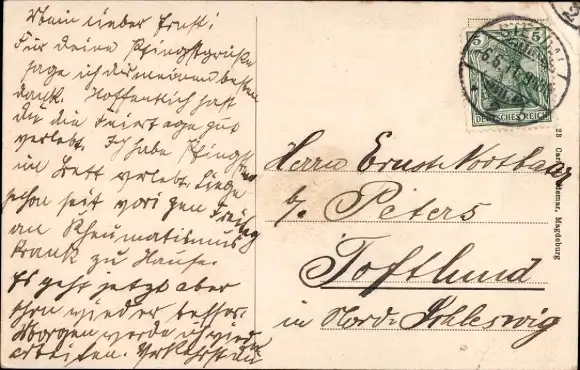 Mein lieber Ernst!
Für deine Pfingstgrüße
sage ich dir meinen besten
Dank. Hoffentlich hast
du die Feiertage gut
verlebt. Ich habe Pfingsten
im Bett verlebt. Liege
schon seit vorigen Freitag
an Rheumatismus
krank zu Hause.
Es geht jetzt aber
schon wieder besser.
Morgen werde ich wieder
arbeiten. Verkehrst du
5 5
DEUTSCHES REICH
Herrn Ernst
b/. Peters
Toftlund
in Nord-Schleswig
Magdeburg